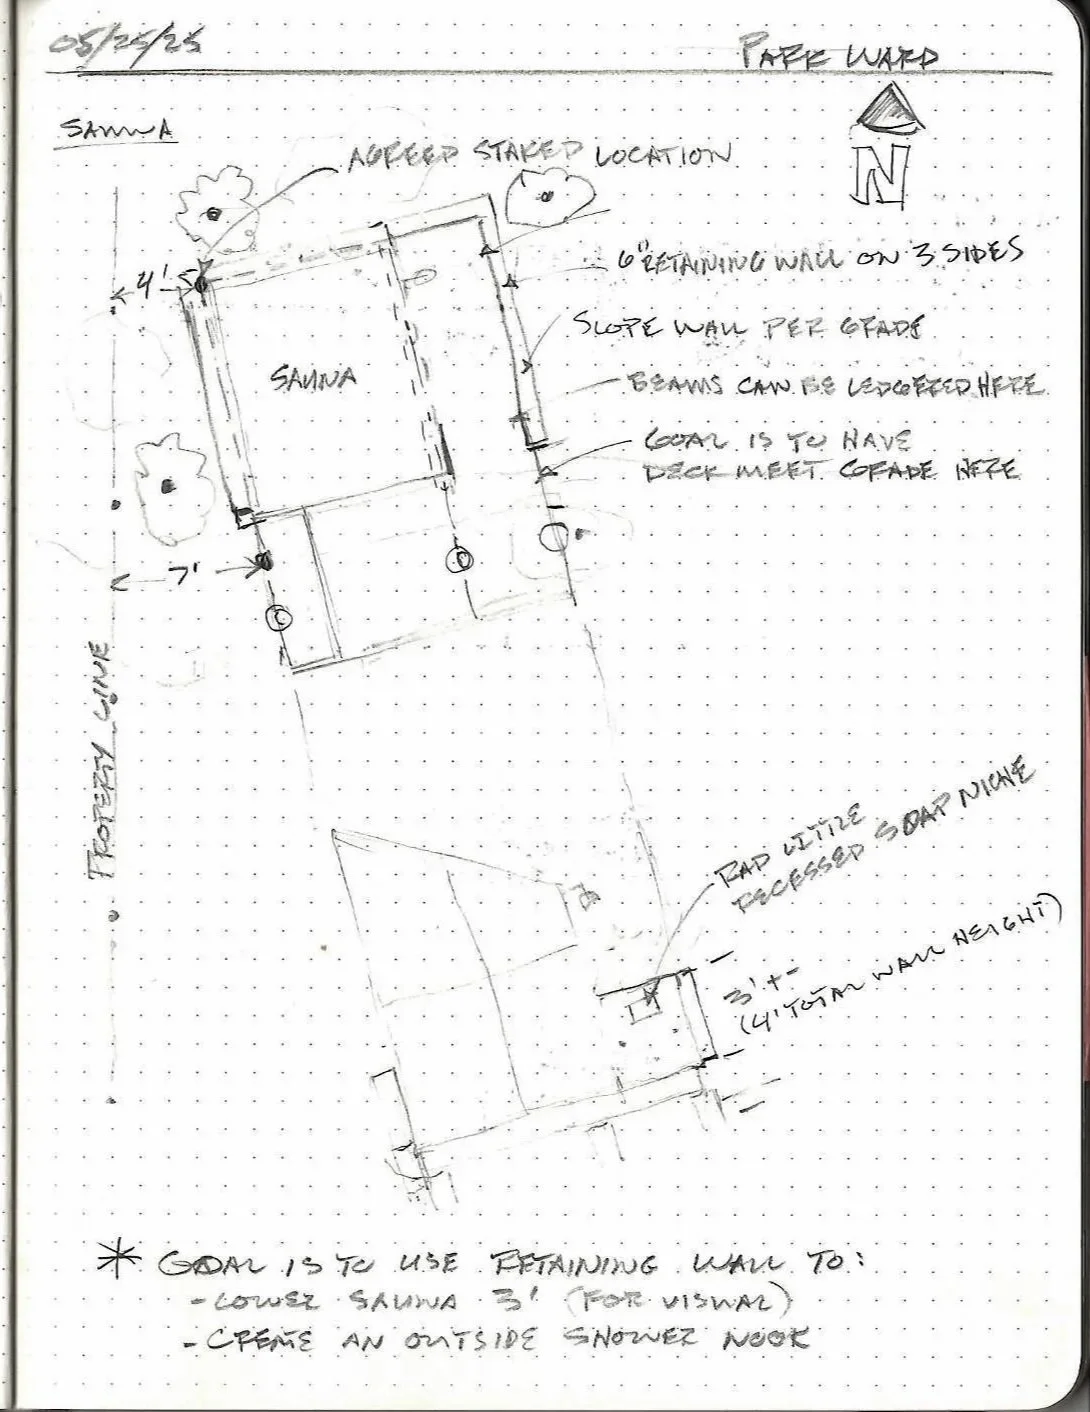 05/25/25
PARK WARD
SAUNA
N
AGREED STAKED LOCATION
4'
6" RETAINING WALL ON 3 SIDES
SLOPE WALL PER GRADE
SAUNA
BEAMS CAN BE LEDGERED HERE
GOAL IS TO HAVE
DECK MEET GRADE HERE
7'
PROPERTY LINE
RAD LITTLE
RECESSED SOAP NICHE
3' +-
(4' TOTAL WALL HEIGHT)
* GOAL IS TO USE RETAINING WALL TO:
- LOWER SAUNA 3' (FOR VISUAL)
- CREATE AN OUTSIDE SHOWER NOOK